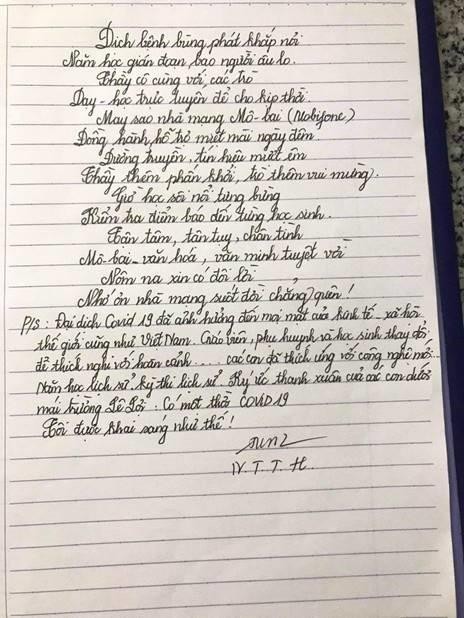 Dịch bệnh bùng phát khắp nơi
Năm học gián đoạn, bao người âu lo.
Thầy cô cùng với các trò
Dạy - học trực tuyến để cho kịp thời
May sao nhà mạng Mô-bai (Mobifone)
Đồng hành, hỗ trợ miệt mài ngày đêm.
Đường truyền, tín hiệu mượt êm
Thầy thêm phấn khởi, trò thêm vui mừng.
Giờ học sôi nổi tưng bừng
Kiểm tra điểm báo đến từng học sinh.
Tân tâm, tận tụy, chân tình
Mô-bai - văn hoá, văn minh tuyệt vời
Nôm na xin có đôi lời
Nhớ ơn nhà mạng suốt đời chẳng quên!
P/S: Đại dịch Covid 19 đã ảnh hưởng đến mọi mặt của kinh tế - xã hội
thế giới cũng như Việt Nam. Giáo viên, phụ huynh và học sinh thay đổi
để thích nghi với hoàn cảnh..... các con đã thích ứng với công nghệ mới..
Năm học lịch sử, kỳ thi lịch sử. Ký ức thanh xuân của các con dưới
mái trường Lê Lợi. Có một thời COVID 19
Tôi được khai sáng như thế!
N.T.T.H